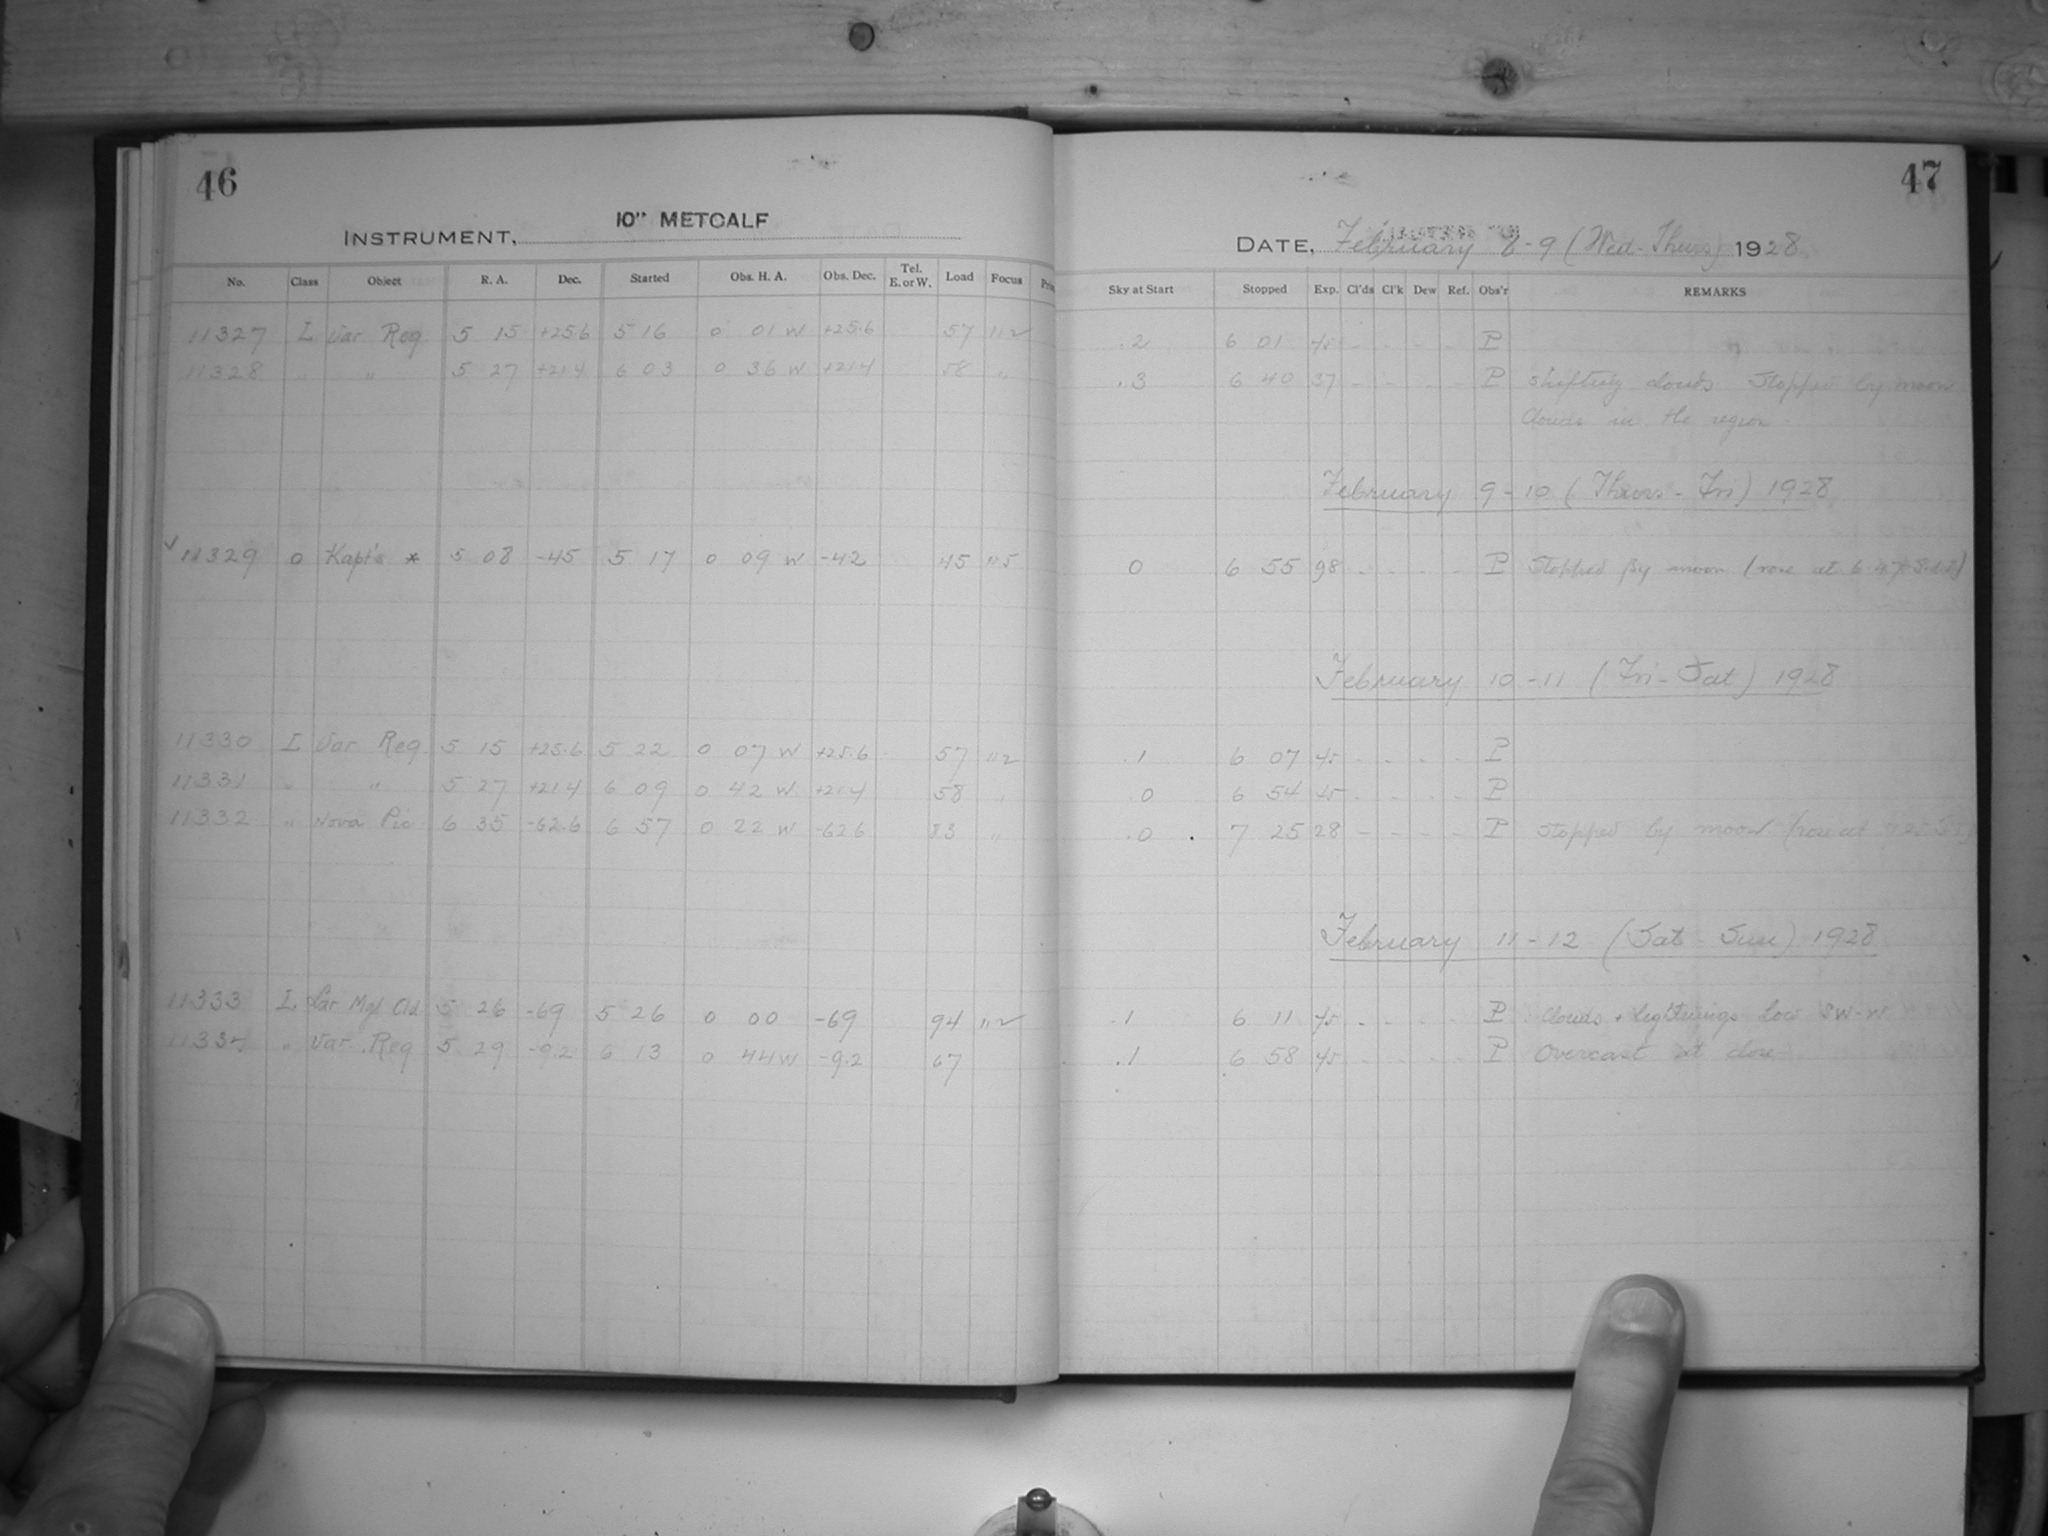 46
INSTRUMENT, 10" METCALF
No. Class Object R. A. Dec. Started Obs. H. A. Obs. Dec. Tel. E. or W. Load Focus
11327 I Var Reg 5 15 +25.6 5 16 0 01 W +25.6 57 11.2
11328 " " 5 27 +21.4 6 03 0 36 W +21.4 58 "
✓ 11329 0 Kapt's * 5 08 -45 5 17 0 09 W -42 45 11.5
11330 I Var Reg 5 15 +25.6 5 22 0 07 W +25.6 57 11.2
11331 " " 5 27 +21.4 6 09 0 42 W +21.4 58 "
11332 " Nova Pic 6 35 -62.6 6 57 0 22 W -62.6 83 "
11333 I Lar Mgl Cld 5 26 -69 5 26 0 00 -69 94 11.2
11334 " Var Reg 5 29 -9.2 6 13 0 44 W -9.2 67
47
DATE, February 8-9 (Wed-Thurs) 1928
Sky at Start Stopped Exp. Cl'ds Cl'k Dew Ref. Obs'r REMARKS
.2 6 01 45 - - - - P
.3 6 40 37 - - - - P Shifting clouds Stopped by moon
Clouds in the region
February 9-10 (Thurs-Fri) 1928
0 6 55 98 - - - - P Stopped by moon (rose at 6.47
February 10-11 (Fri-Sat) 1928
.1 6 07 45 - - - - P
.0 6 54 45 - - - - P
.0 7 25 28 - - - - P Stopped by moon (rose at
February 11-12 (Sat-Sun) 1928
.1 6 11 45 - - - - P Clouds + lightnings low SW-W
.1 6 58 45 - - - - P Overcast at close